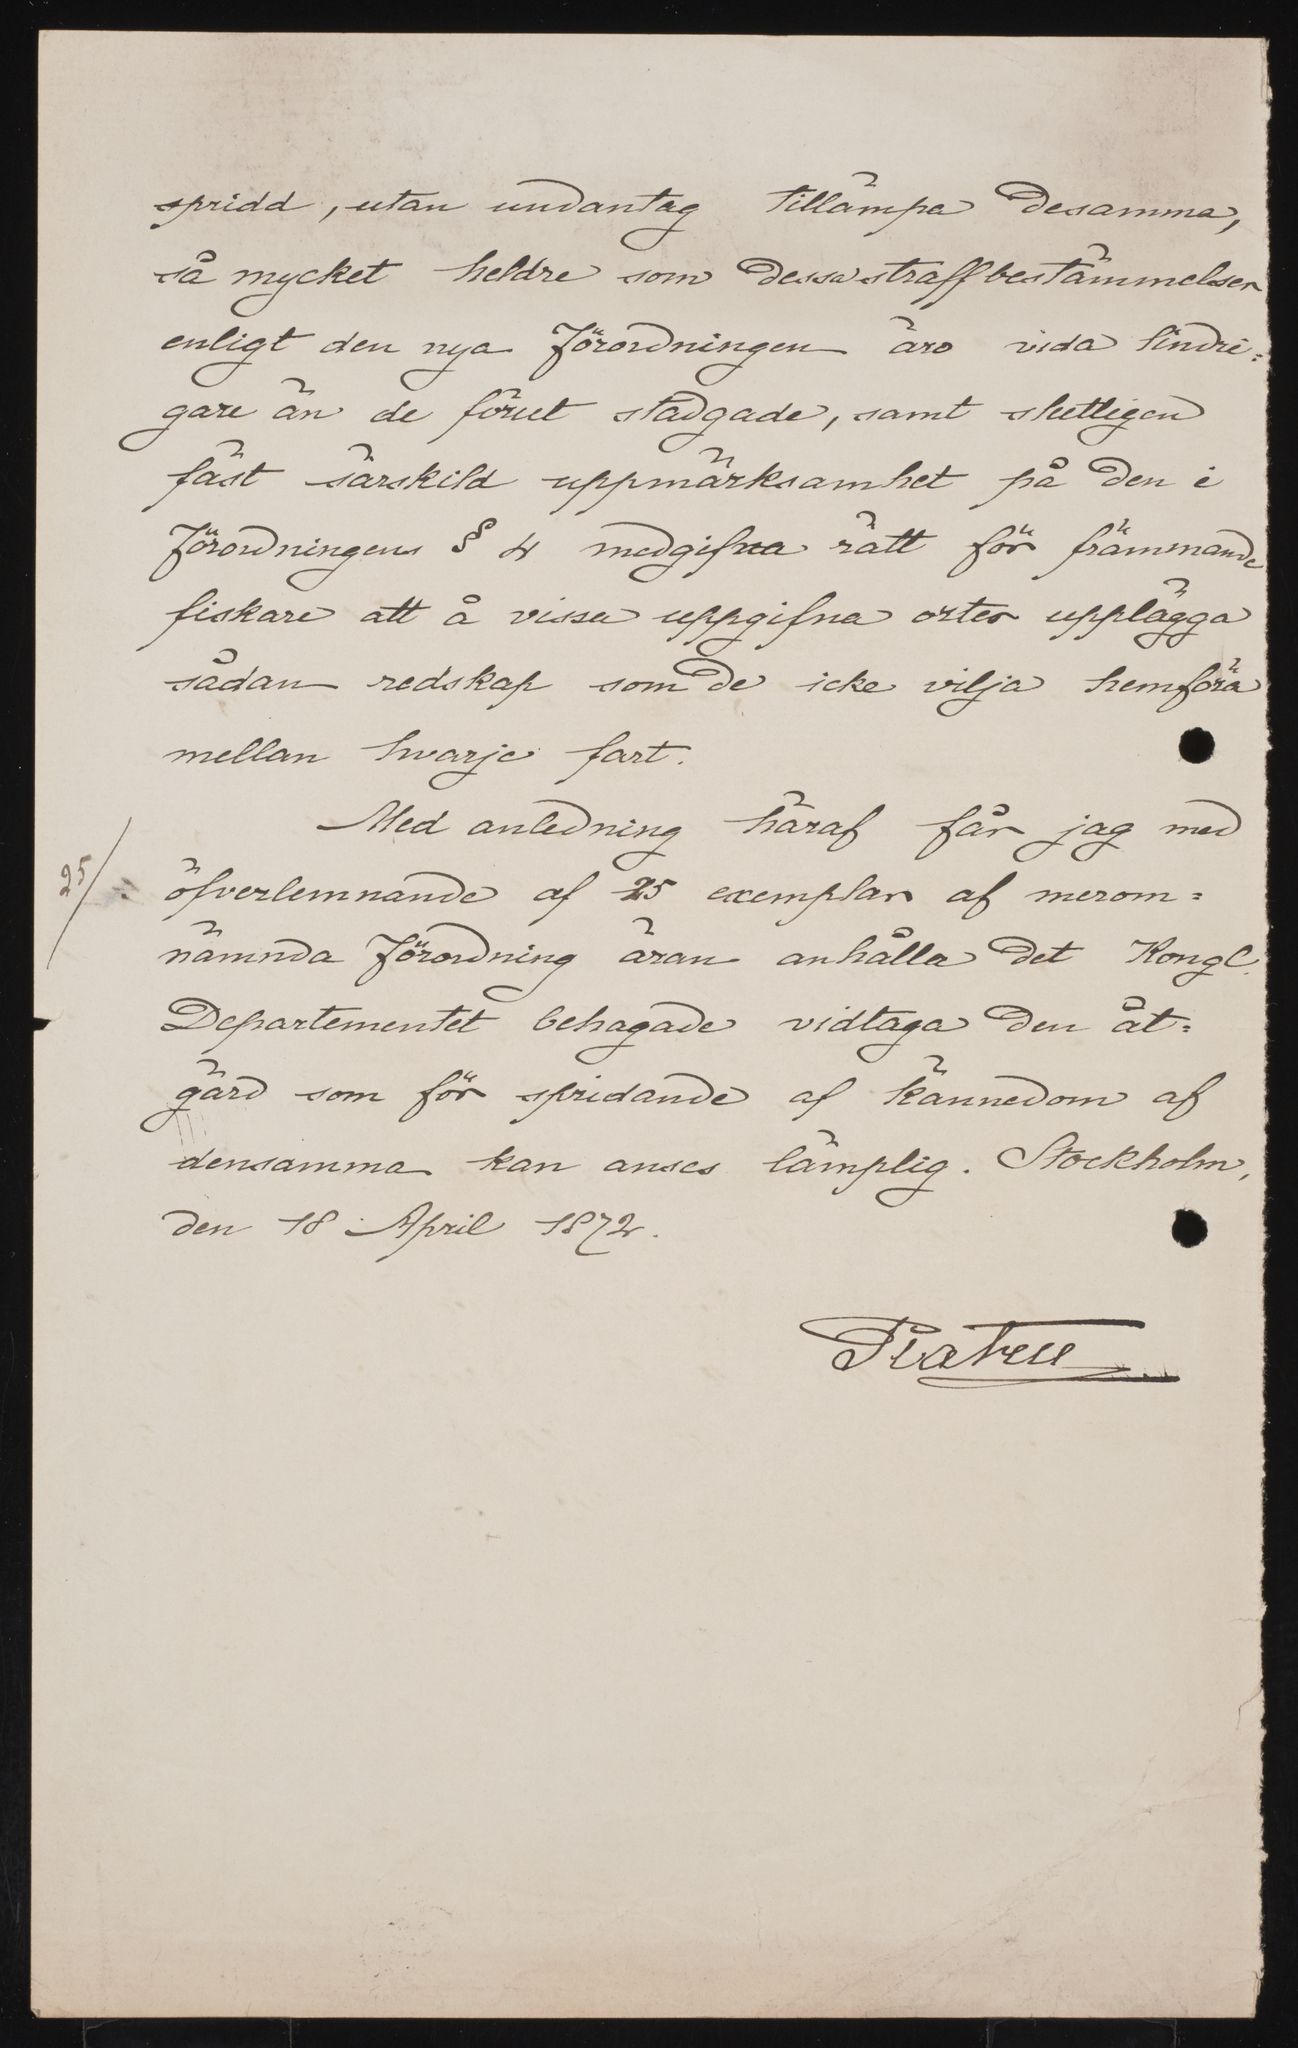 spridd, utan undantag tillämpa desamma,
så mycket heldre som dessa straffbestämmelser
enligt den nya Förordningen äro vida lindri=
gare än de förut stadgade, samt slutligen
fäst särskild uppmärksamhet på den i
Förordningens § 4 medgifna rätt för främmande
fiskare att å vissa uppgifna orter upplägga
sådan redskap som de icke vilja hemföra
mellan hvarje fart.
Med anledning häraf får jag med
25/ öfverlemnande af 25 exemplar af merom=
nämnda Förordning äran anhålla det Kongl.
Departementet behagade vidtaga den åt=
gärd som för spridande af kännedom af
densamma kan anses lämplig. Stockholm,
den 18 April 1872.
Platen